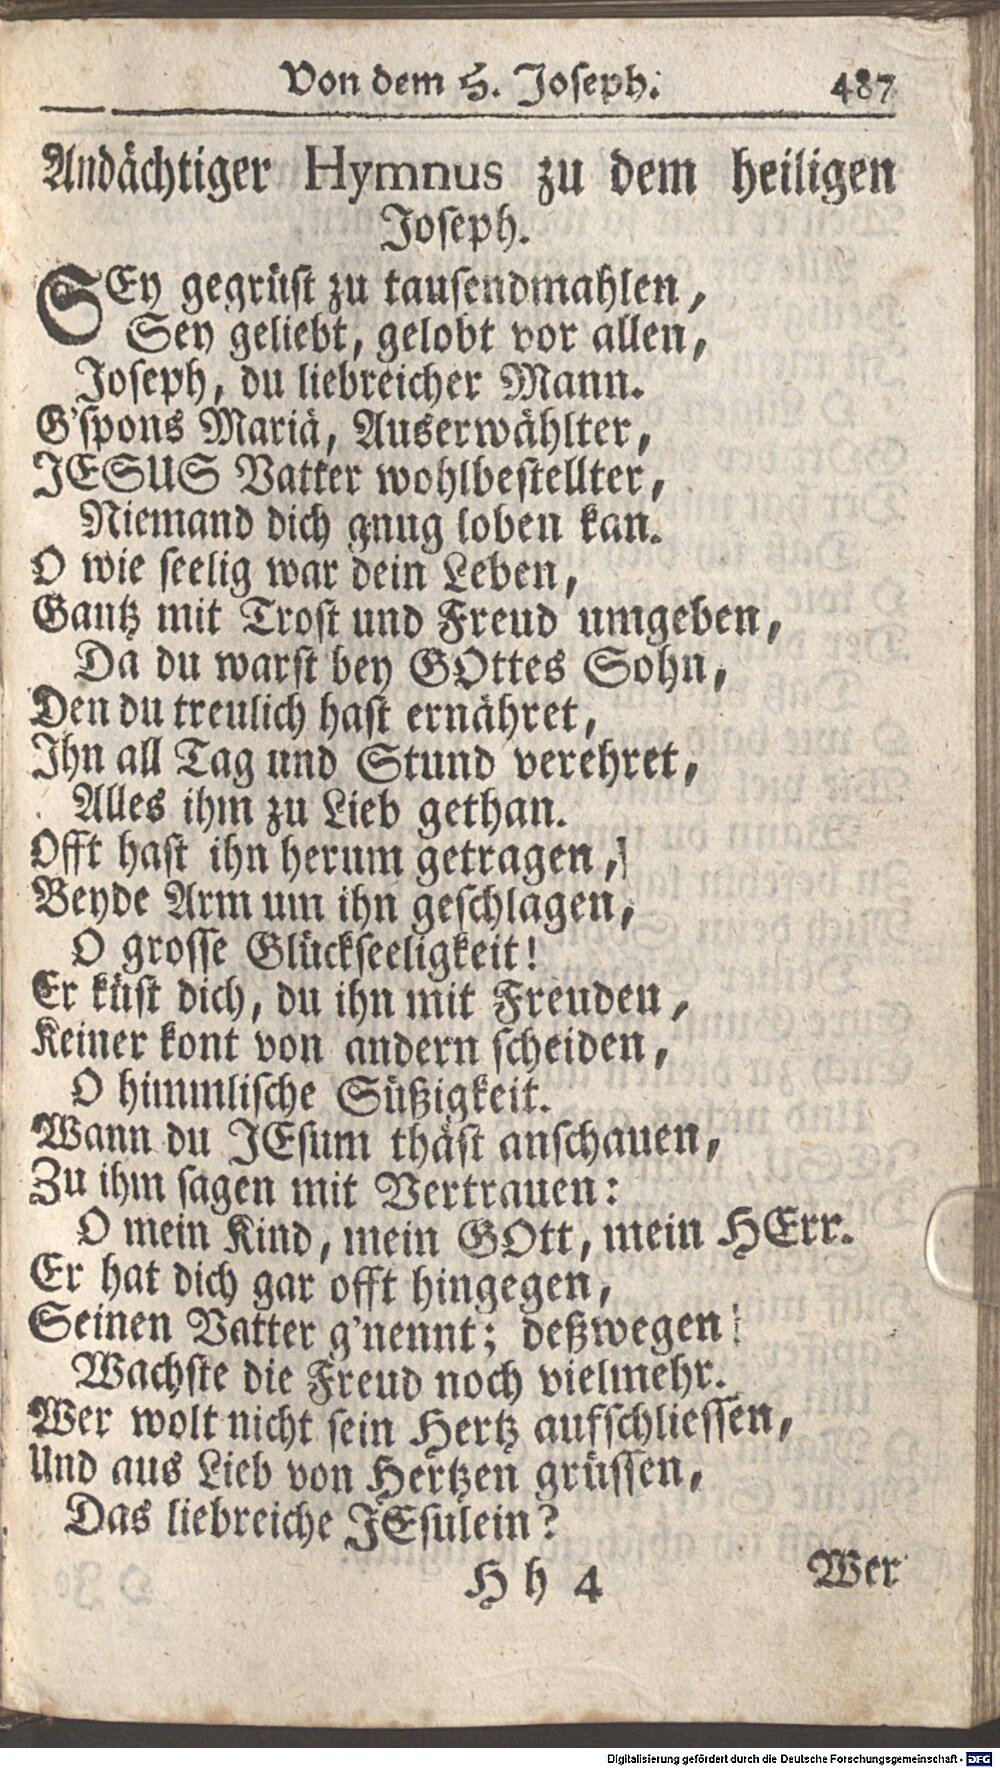 Von dem H. Joseph. 487
Andächtiger Hymnus zu dem heiligen
Joseph.
SEy gegrüst zu tausendmahlen,
Sey geliebt, gelobt vor allen,
Joseph, du liebreicher Mann.
G'spons Mariä, Auserwählter,
JESUS Vatter wohlbestellter,
Niemand dich gnug loben kan.
O wie seelig war dein Leben,
Gantz mit Trost und Freud umgeben,
Da du warst bey GOttes Sohn,
Den du treulich hast ernähret,
Ihn all Tag und Stund verehret,
Alles ihm zu Lieb gethan.
Offt hast ihn herum getragen,
Beyde Arm um ihn geschlagen,
O grosse Glückseeligkeit!
Er küst dich, du ihn mit Freuden,
Keiner kont von andern scheiden,
O himmlische Süßigkeit.
Wann du JEsum thäst anschauen,
Zu ihm sagen mit Vertrauen:
O mein Kind, mein GOtt, mein HErr.
Er hat dich gar offt hingegen,
Seinen Vatter g'nennt; deßwegen
Wachste die Freud noch vielmehr.
Wer wolt nicht sein Hertz aufschliessen,
Und aus Lieb von Hertzen grüssen,
Das liebreiche JEsulein?
H h 4 Wer
Digitalisierung gefördert durch die Deutsche Forschungsgemeinschaft - DFG